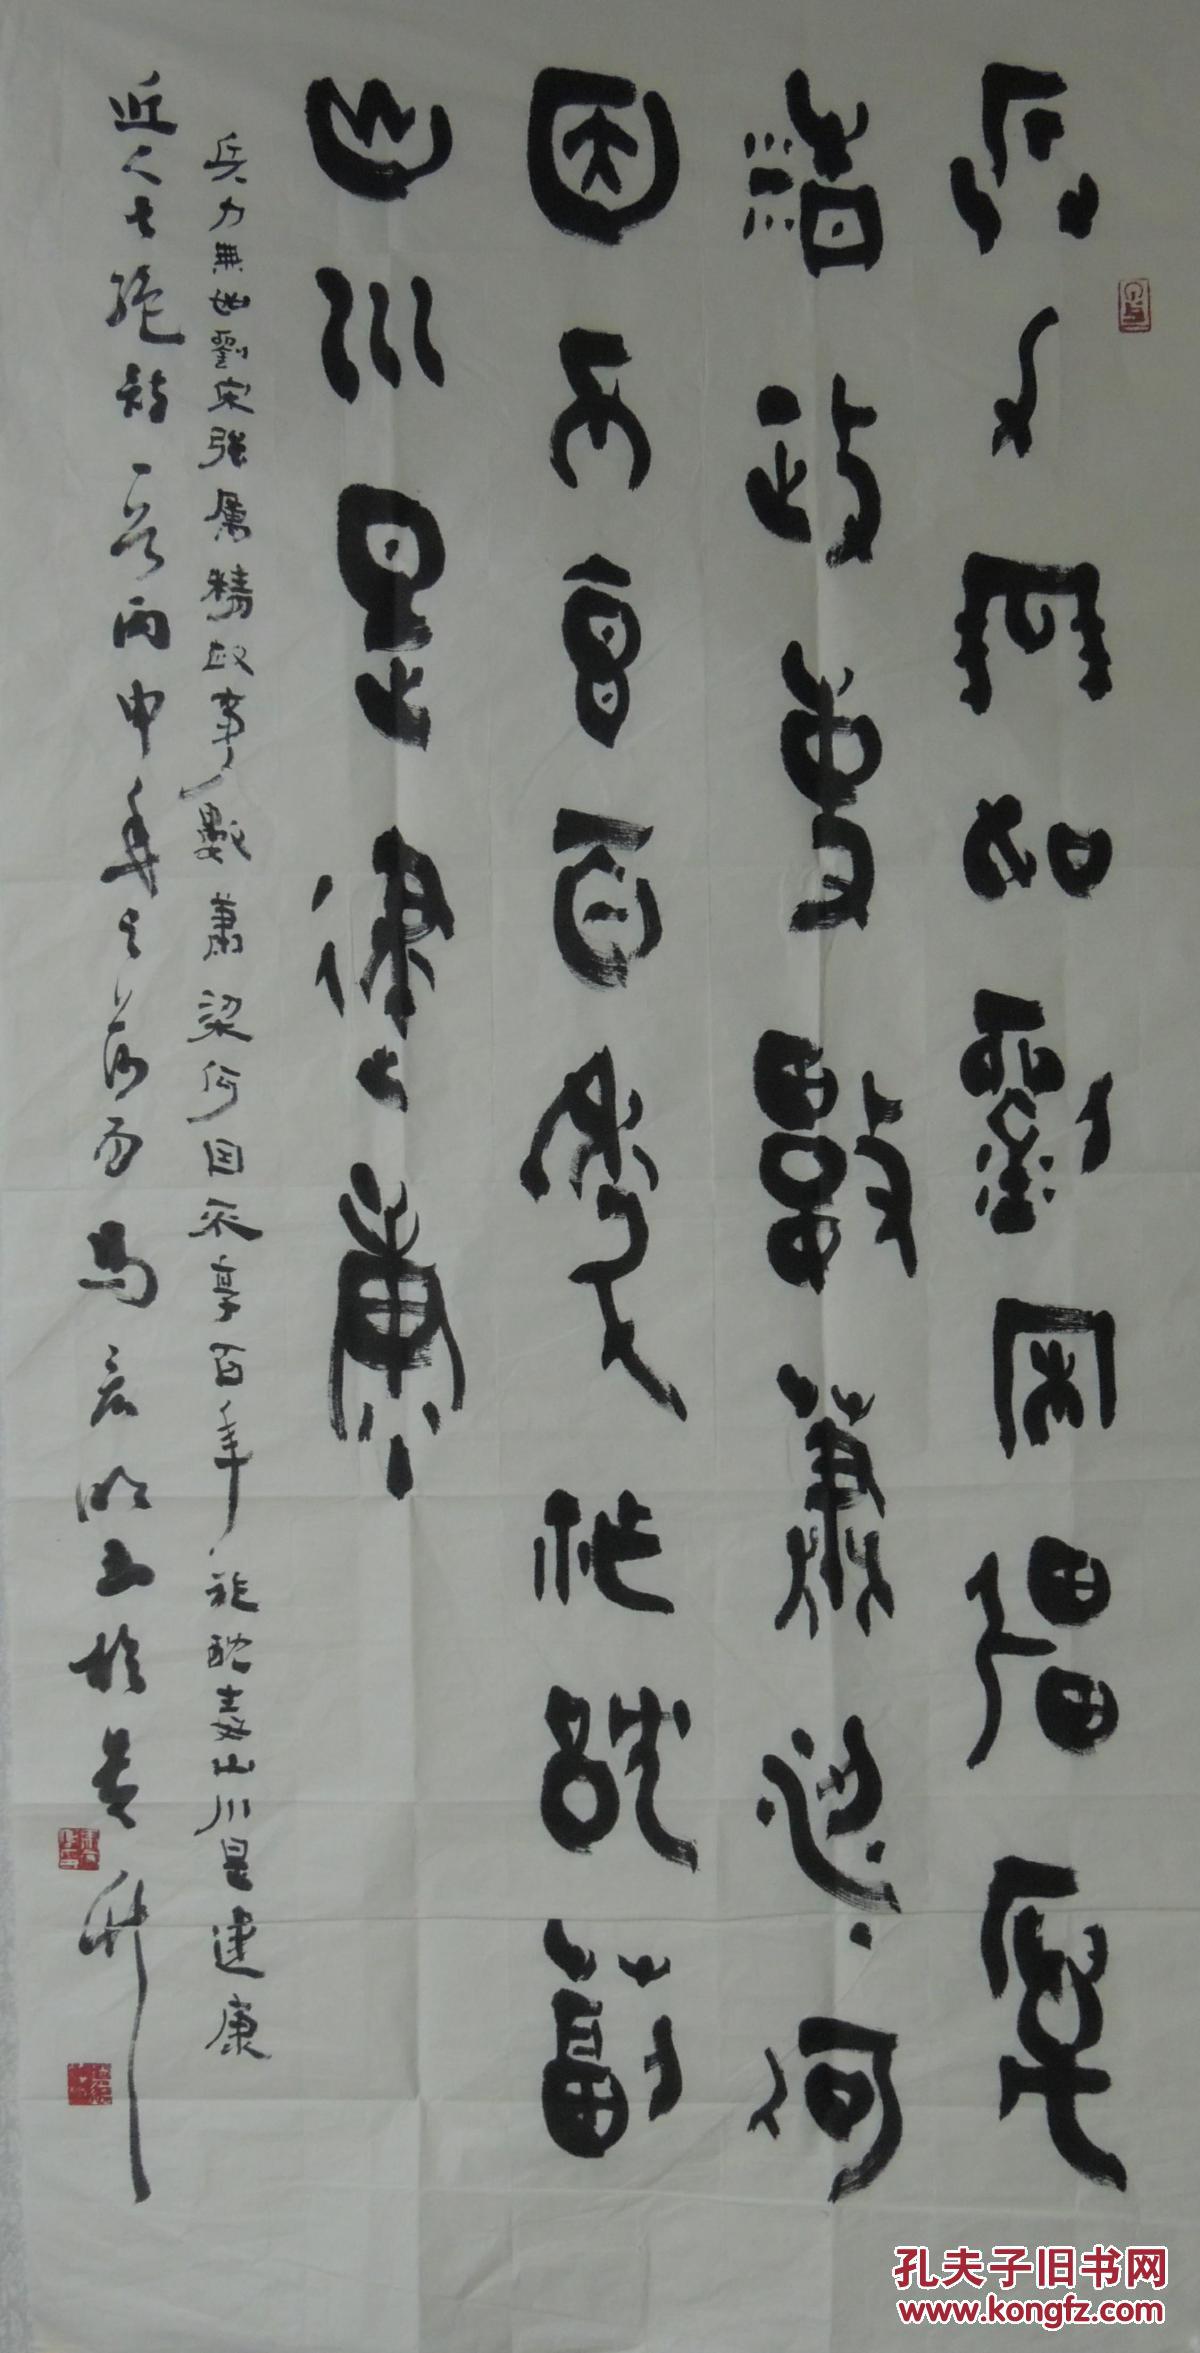 兵力無如劉宋強厲
精政事數蕭梁何
因不享百年祚酖毒
山川是建康
兵力無如劉宋強厲精政事數蕭梁何因不享百年祚酖毒山川是建康
近人七絕詩一首丙申年之
孔夫子旧书网
www.kongfz.com